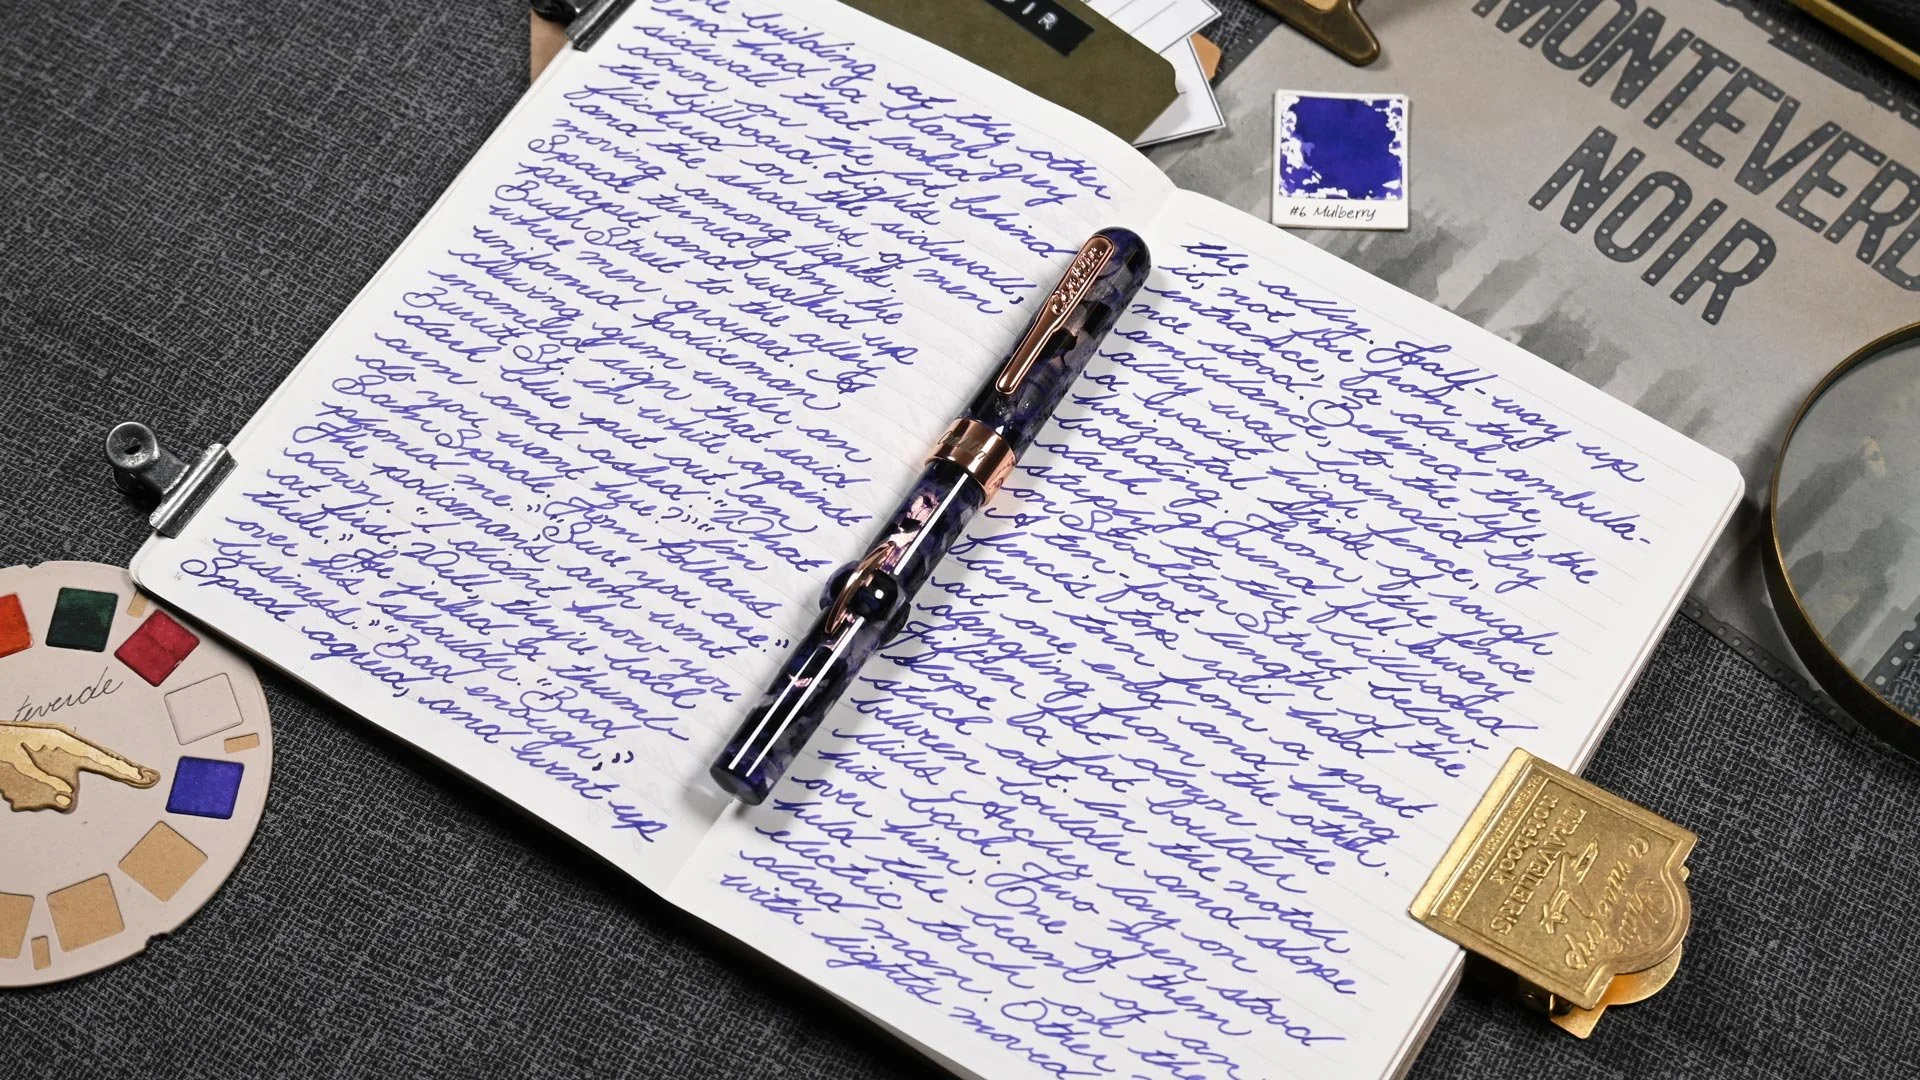 the building at the other
end had a blank grey
sidewall that looked
down on the lot behind
the billboard. Lights
flickered on the sidewall,
and the shadows of men
moving among lights.
Spade turned from the
parapet and walked up
Bush Street to the alley
where men grouped. A
uniformed policeman
chewing gum under an
enameled sign that said
Burritt St. in white against
dark blue put out an
arm and asked: "What
do you want here?" "I'm
Sam Spade. Tom Polhaus
phoned me." "Sure you are."
The policeman's arm went
down. "I didn't know you
at first. Well, they're back
there." He jerked his thumb
over his shoulder. "Bad
business." "Bad enough,"
Spade agreed, and went up
the alley. Half-way up
it, not far from the
entrance, a dark ambula-
nce stood. Behind the
ambulance, to the left, the
alley was bounded by
waist-high fence,
horizontal strips of rough
boarding. From the fence
dark ground fell away
steeply to the billboard
on Stockton Street below.
ten-foot length of the
fence's top rail had
been torn from a post
at one end and hung
dangling from the other.
Fifteen feet down the
slope a flat boulder
stuck out. In the notch
between boulder and slope
Miles Archer lay on
his back. Two men stood
over him. One of them
held the beam of an
electric torch on the
dead man. Other
with lights moved
Conklin
#6 Mulberry
MONTEVERD
NOIR
OIR
teverde
Have
a nice trip
TRAVELER'S
notebook